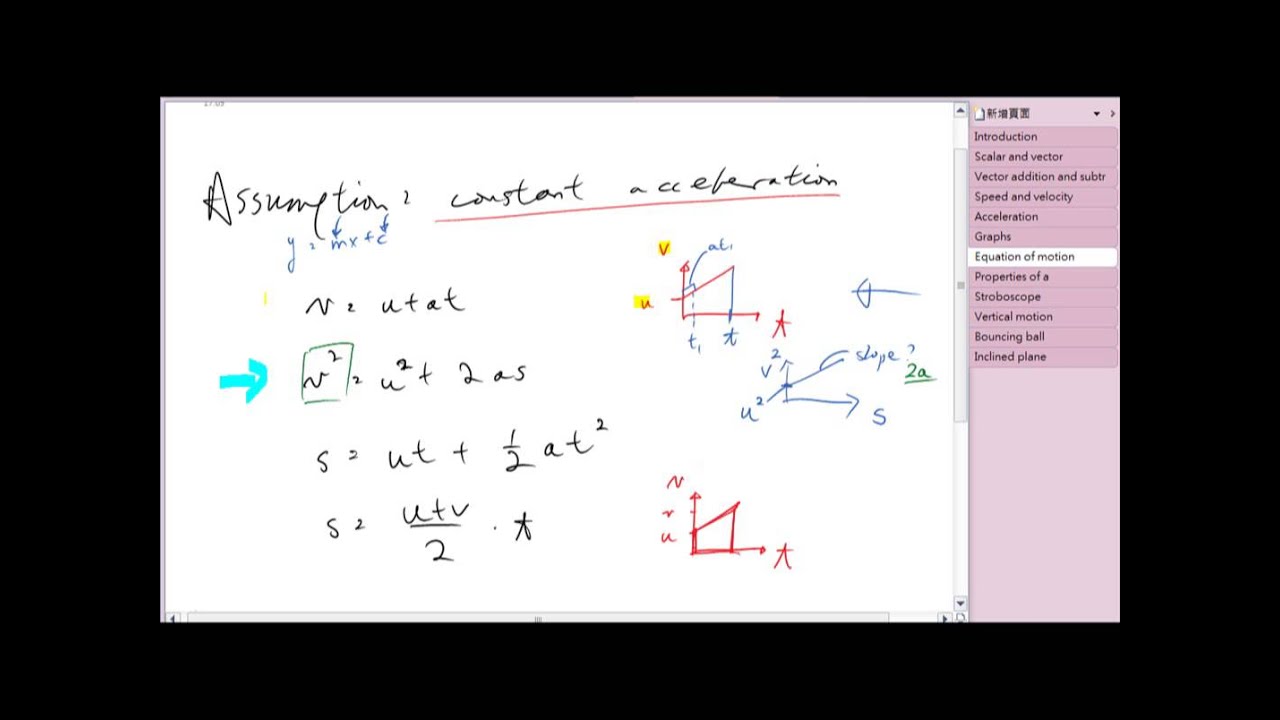 17:09
Assumption: constant acceleration
y = mx + c
v = u + at
v² = u² + 2as
s = ut + ½ at²
s = (u+v)/2 · t
v
at₁
u
t₁
t
t
v²
slope?
2a
u²
s
v
v
u
t
新增頁面
Introduction
Scalar and vector
Vector addition and subtr
Speed and velocity
Acceleration
Graphs
Equation of motion
Properties of a
Stroboscope
Vertical motion
Bouncing ball
Inclined plane